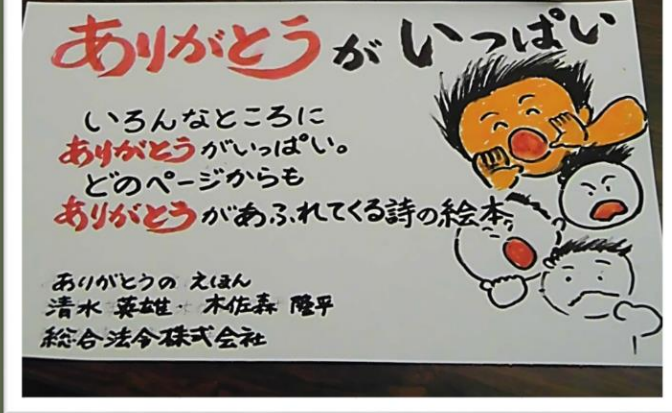 ありがとうがいっぱい
いろんなところに
ありがとうがいっぱい。
どのページからも
ありがとうがあふれてくる詩の絵本
ありがとうの えほん
清水 英雄 木佐森 隆平
総合法令株式会社